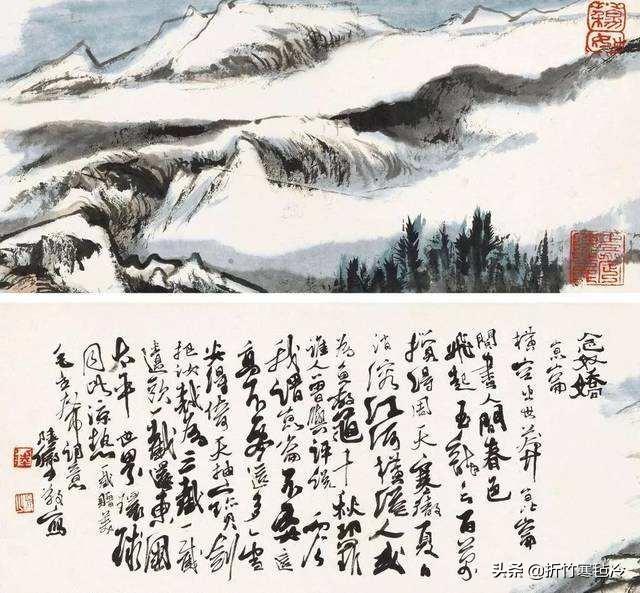 念奴嬌
崑崙
橫空出世莽崑崙
閱盡人間春色
飛起玉龍三百萬
攪得周天寒徹夏日
消溶江河橫溢人或
為魚鱉千秋功罪
誰人曾與評說而今
我謂崑崙不要這
高不要這多雪
安得倚天抽寶劍
把汝裁為三截一截
遺歐一截還東國
太平世界環球
同此涼熱一截贈美
毛主席詞意
陸儼少敬寫
头条 @折竹寒毡冷